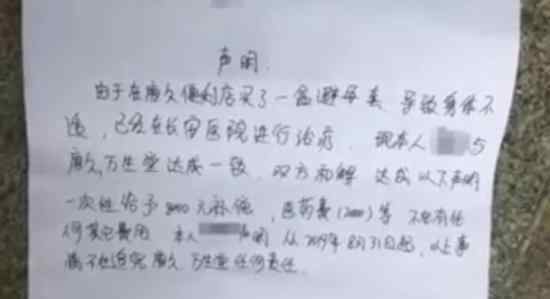 声明.
由于在唐久便利店买了一盒避孕套、导致身体不
适，已经在长安医院进行治疗. 现本人 与
唐久、万生堂达成一致. 双方和解 达成以下声明
一次性给予8000元补偿，医药费(2000)等 不包有任
何其它费用 本人 声明 从2019年8月31日起，以上事
情不在追究唐久、万生堂任何责任.